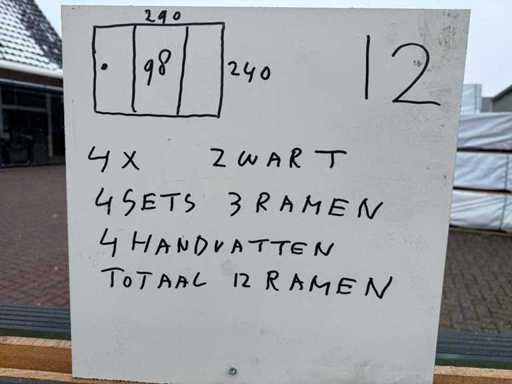 290
98
240
12
4X ZWART
4 SETS 3 RAMEN
4 HANDVATTEN
TOTAAL 12 RAMEN